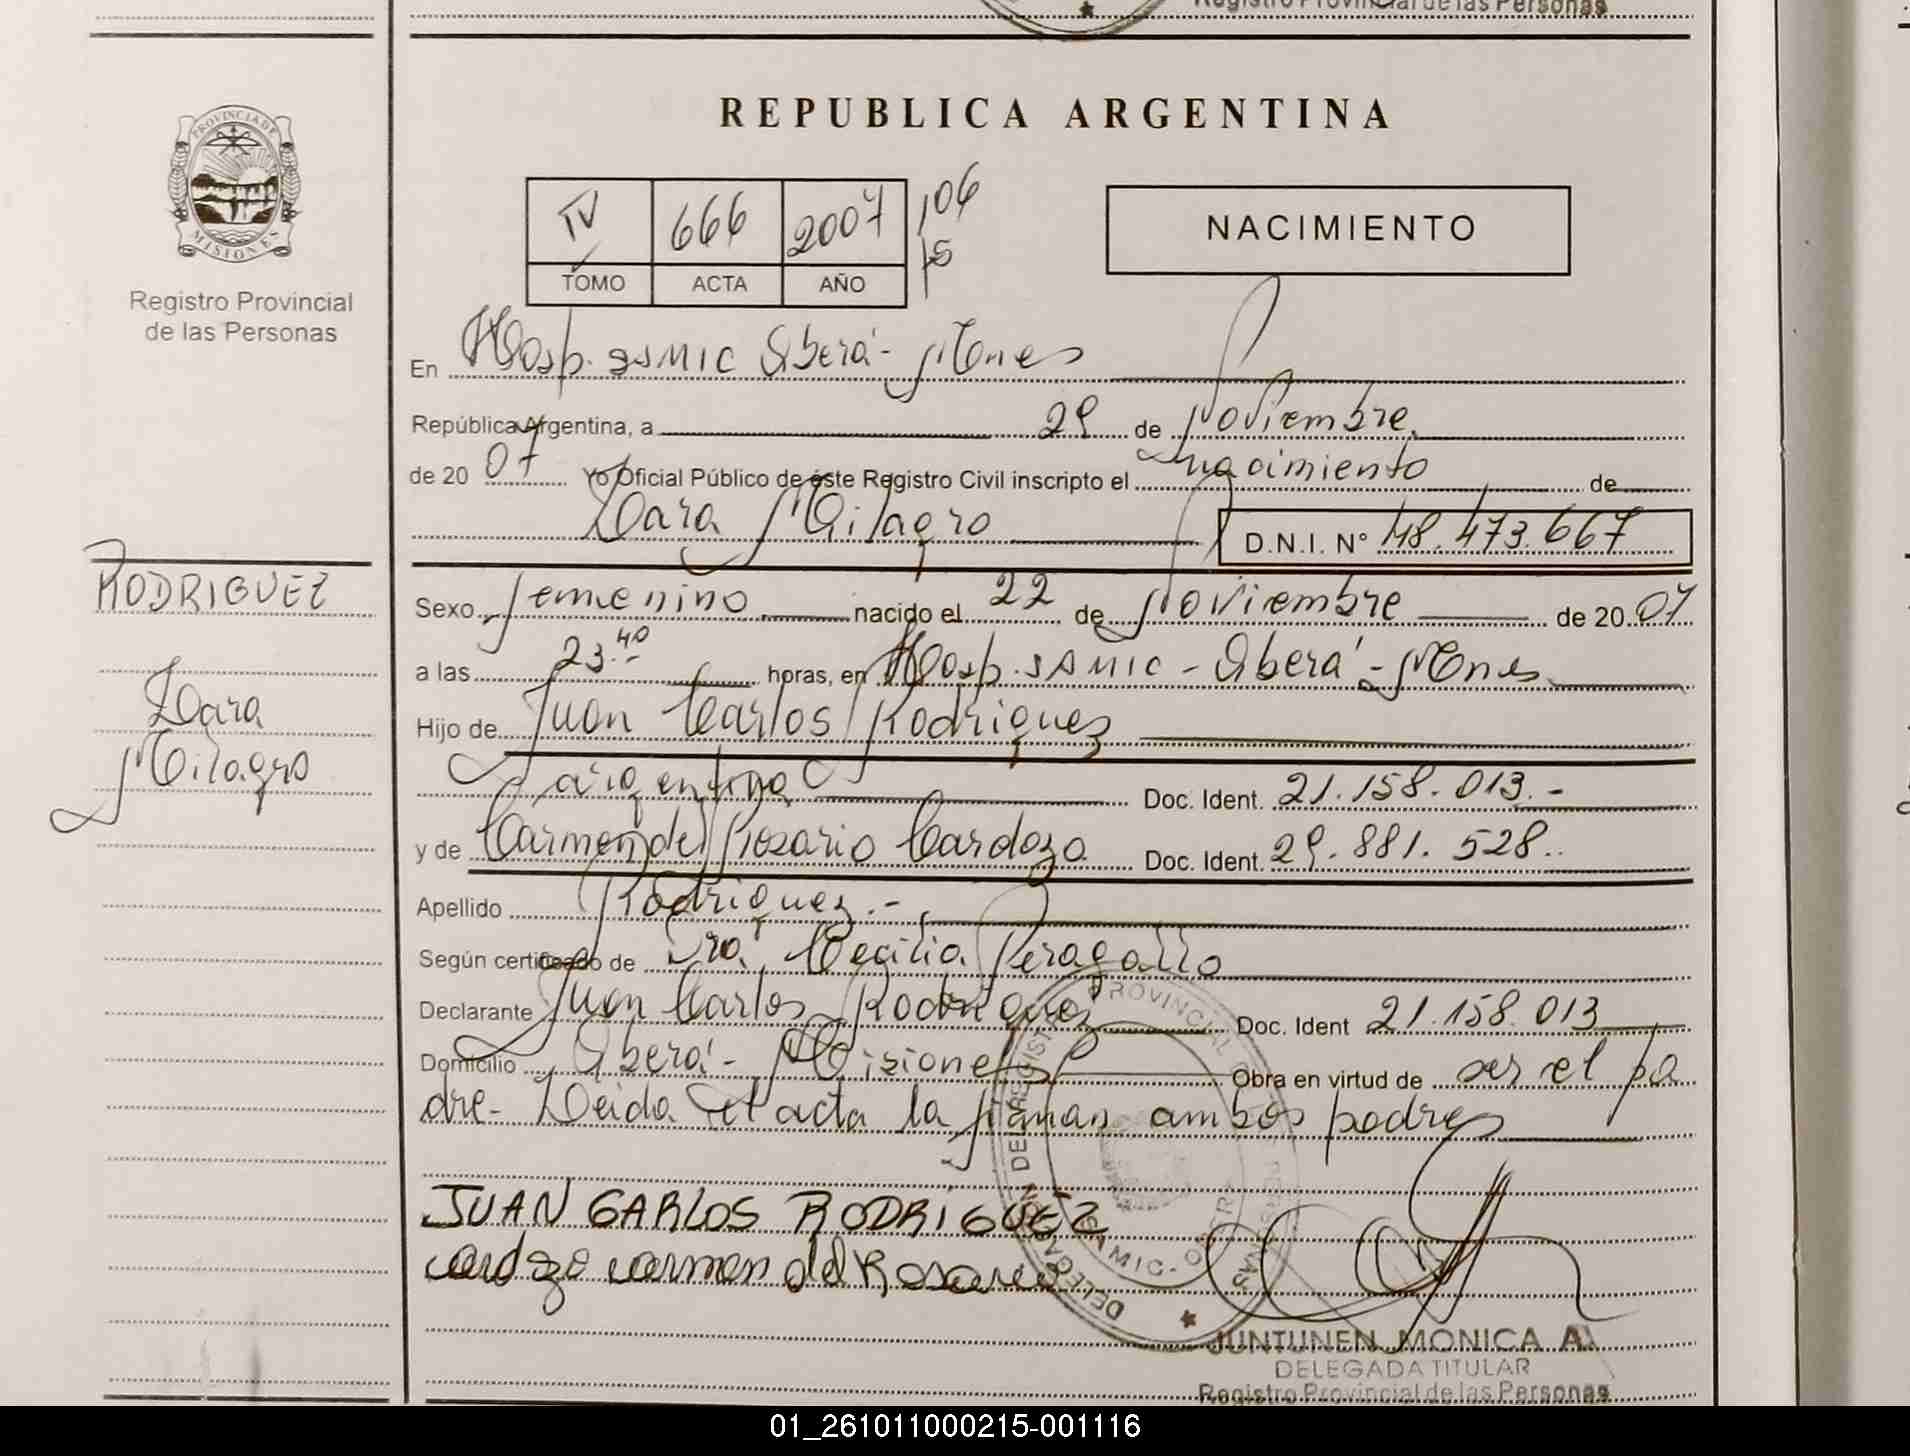 Registro Provincial de las Personas
PROVINCIA DE
MISIONES
Registro Provincial
de las Personas
REPUBLICA ARGENTINA
IV 666 2007 106
15
TOMO ACTA AÑO
NACIMIENTO
En Hosp. SAMIC Oberá - Mnes
República Argentina, a 29 de Noviembre
de 20 07 Yo Oficial Público de éste Registro Civil inscripto el nacimiento de
Dara Milagro D.N.I. N° 48.473.667
RODRIGUEZ
Dara
Milagro
Sexo femenino nacido el 22 de Noviembre de 20 07
a las 23.40 horas, en Hosp. SAMIC - Oberá - Mnes
Hijo de Juan Carlos Rodriguez
argentina Doc. Ident. 21.158.013.-
y de Carmen del Rosario Cardozo Doc. Ident. 29.881.528
Apellido Rodriguez.-
Según certificado de Dra. Cecilia Peragallo
Declarante Juan Carlos Rodriguez Doc. Ident 21.158.013
Domicilio Oberá - Misiones Obra en virtud de ser el pa
dre- Leida el acta la firman ambos padres
JUAN CARLOS RODRIGUEZ
cardozo carmen del Rosario
JUNTUNEN MONICA A.
DELEGADA TITULAR
Registro Provincial de las Personas
01_261011000215-001116